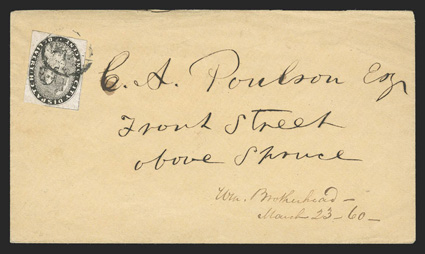 C. A. Poulson Esqr
Front Street
above Spruce
Wm. Brotherhead -
March 23 - 60 -